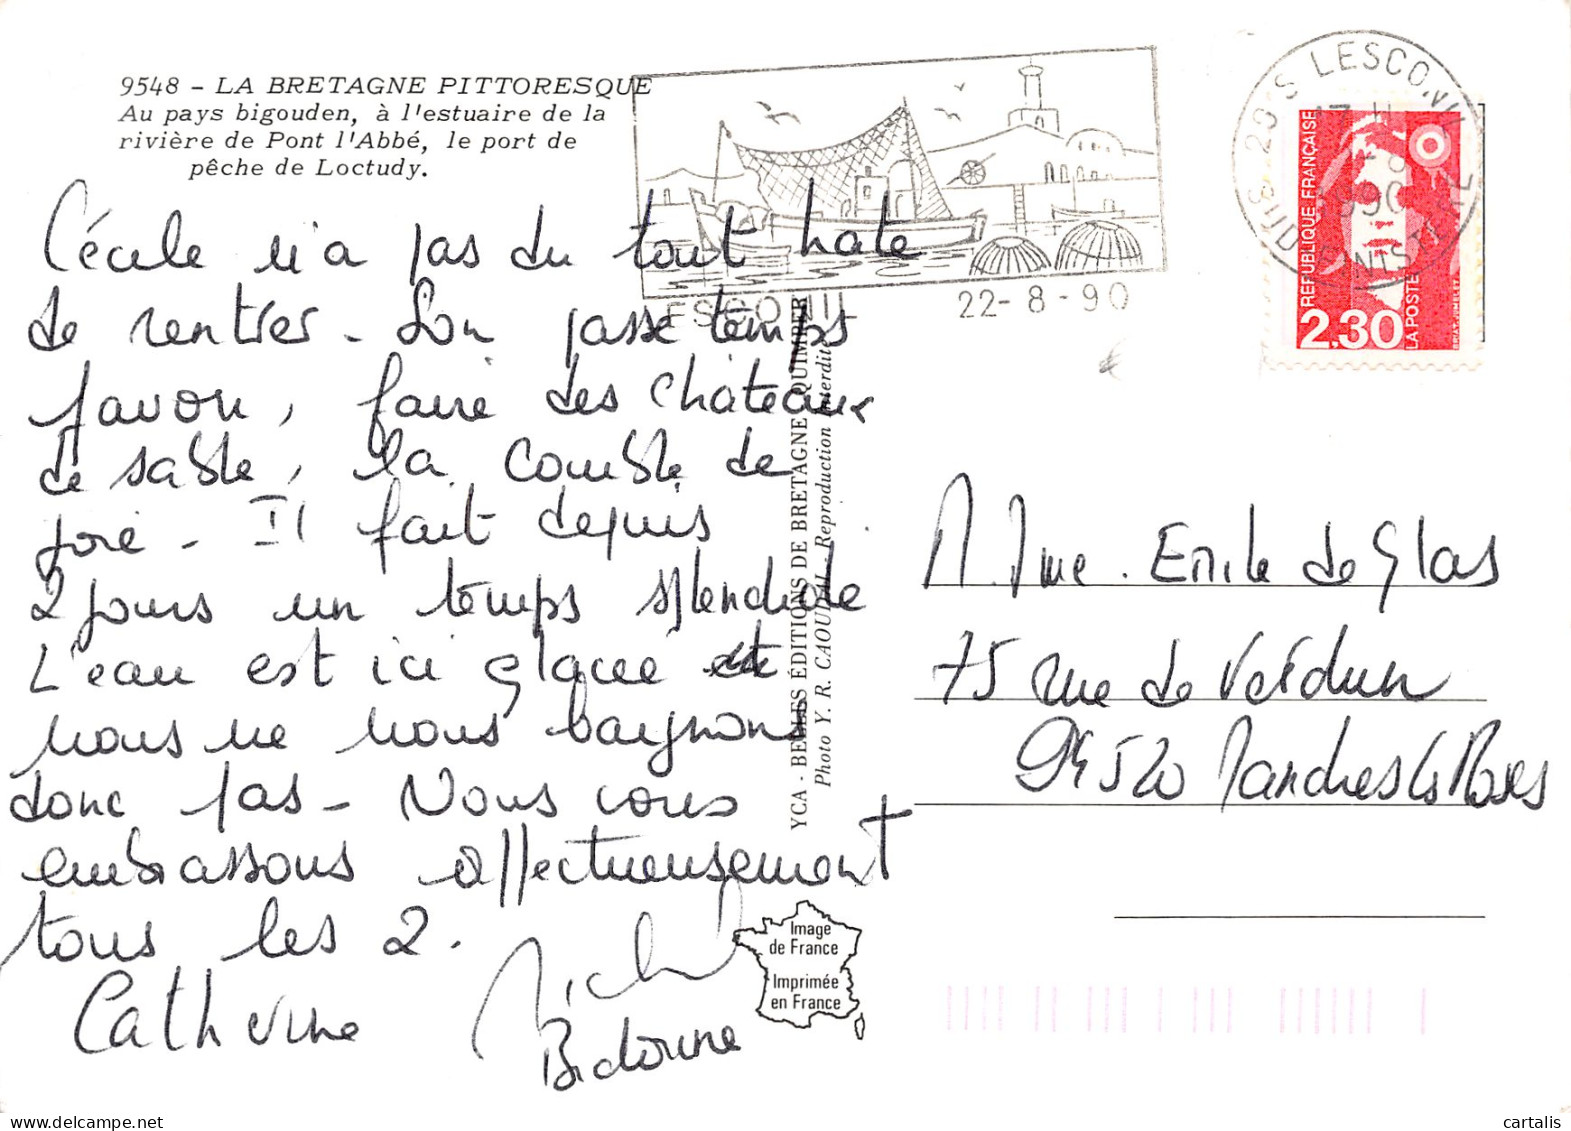 9548 - LA BRETAGNE PITTORESQUE
Au pays bigouden, à l'estuaire de la
rivière de Pont l'Abbé, le port de
pêche de Loctudy.
Cécile n'a pas du tout hate
de rentrer - Son passe temps
favori, faire des châteaux
de sable, la comble de
joie - Il fait depuis
2 jours un temps splendide
L'eau est ici glacée et
nous ne nous baignons
donc pas - Nous vous
embrassons affectueusement
tous les 2.
Catherine Michel
Bidonne
YCA - BELLES ÉDITIONS DE BRETAGNE QUIMPER
Photo Y. R. CAOUDAL - Reproduction Interdite
Image
de France
Imprimée
en France
LESCONIL 22-8-90
LESCONIL
RÉPUBLIQUE FRANÇAISE
2,30
LA POSTE
M. Mme. Emile de Glas
75 rue de Verdun
94520 Mandres les Roses
cartalis